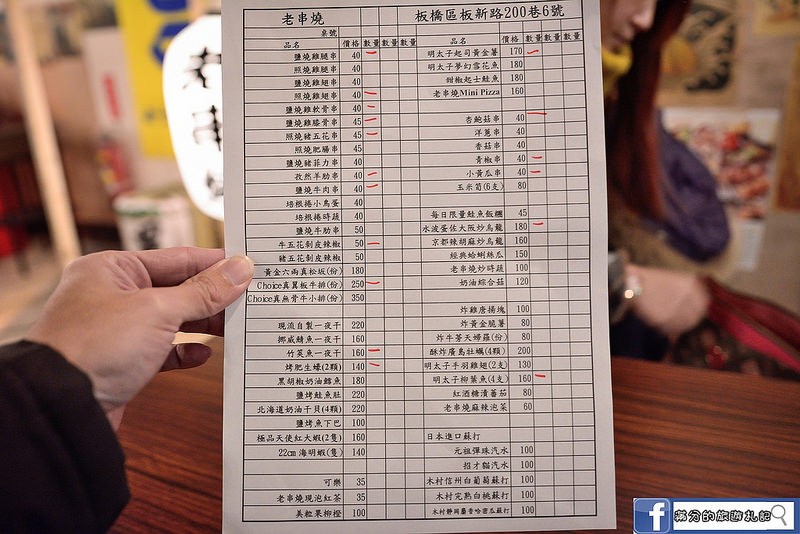 老串燒
板橋區板新路200巷6號
桌號
品名 價格 數量 數量 數量
鹽燒雞腿串 40
照燒雞腿串 40
鹽燒雞翅串 40
照燒雞翅串 40
鹽燒雞軟骨串 40
鹽燒雞膝骨串 45
照燒豬五花串 45
照燒肥腸串 45
鹽燒豬菲力串 40
孜然羊肋串 40
鹽燒牛肉串 40
培根捲小鳥蛋 40
培根捲時蔬 40
鹽燒牛肋串 50
牛五花剝皮辣椒 50
豬五花剝皮辣椒 50
黃金六兩真松坂(份) 180
Choice真翼板牛排(份) 250
Choice真無骨牛小排(份) 350
現流自製一夜干 220
挪威鯖魚一夜干 160
竹筴魚一夜干 160
烤肥生蠔(2顆) 140
黑胡椒奶油鱈魚 180
鹽烤鮭魚肚 220
北海道奶油干貝(4顆) 220
鹽烤魚下巴 100
極品天使紅大蝦(2隻) 160
22cm 海明蝦(隻) 140
可樂 35
老串燒現泡紅茶 35
美粒果柳橙 100
品名 價格 數量 數量 數量
明太子起司黃金薯 170
明太子夢幻雪花魚 180
甜椒起士鮭魚 180
老串燒Mini Pizza 160
杏鮑菇串 40
洋蔥串 40
香菇串 40
青椒串 40
小黃瓜串 40
玉米筍(6支) 80
每日限量鮭魚飯糰 45
水波蛋佐大阪炒烏龍 180
京都辣胡麻炒烏龍 160
經典蛤蜊絲瓜 150
老串燒炒時蔬 100
奶油綜合菇 120
炸雞唐揚塊 100
炸黃金脆薯 80
炸牛蒡天婦羅(份) 80
酥炸廣島牡蠣(4顆) 200
明太子手羽雞翅(2支) 130
明太子柳葉魚(4支) 160
紅酒糖漬蕃茄 80
老串燒麻辣泡菜 60
日本進口蘇打
元祖彈珠汽水 100
招才貓汽水 100
木村信州白葡萄蘇打 100
木村完熟白桃蘇打 100
木村靜岡麝香哈密瓜蘇打 100
滿分的旅遊札記